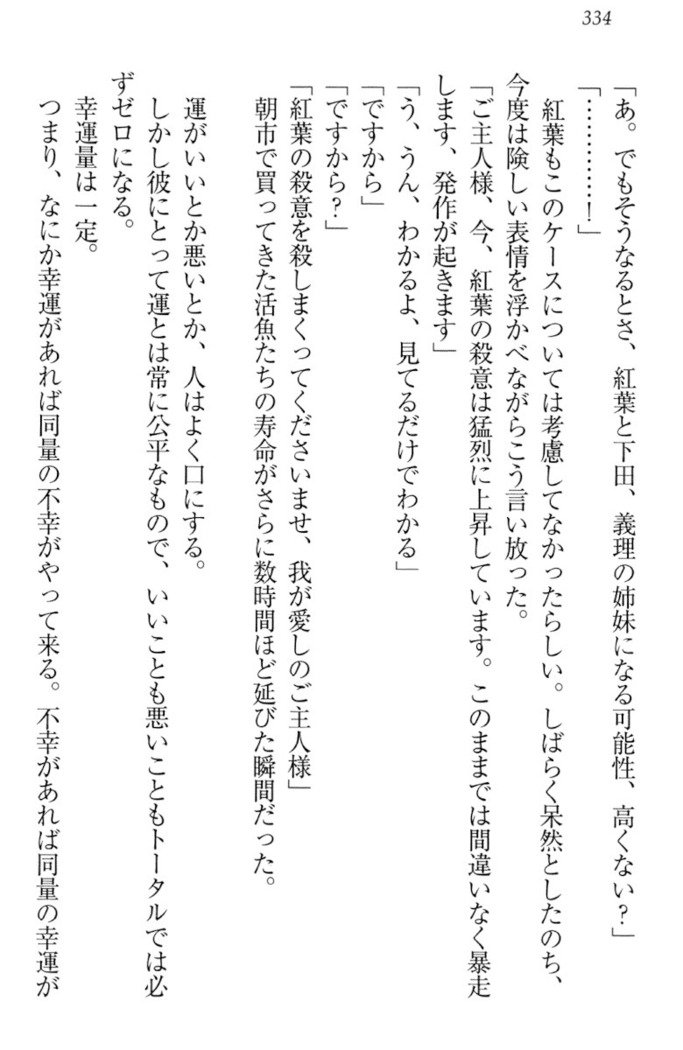 334
「あ。でもそうなるとさ、紅葉と下田、義理の姉妹になる可能性、高くない？」
「…………！」
紅葉もこのケースについては考慮してなかったらしい。しばらく呆然としたのち、
今度は険しい表情を浮かべながらこう言い放った。
「ご主人様、今、紅葉の殺意は猛烈に上昇しています。このままでは間違いなく暴走
します、発作が起きます」
「う、うん、わかるよ、見てるだけでわかる」
「ですから」
「ですから？」
「紅葉の殺意を殺しまくってくださいませ、我が愛しのご主人様」
朝市で買ってきた活魚たちの寿命がさらに数時間ほど延びた瞬間だった。
運がいいとか悪いとか、人はよく口にする。
しかし彼にとって運とは常に公平なもので、いいことも悪いこともトータルでは必
ずゼロになる。
幸運量は一定。
つまり、なにか幸運があれば同量の不幸がやって来る。不幸があれば同量の幸運が